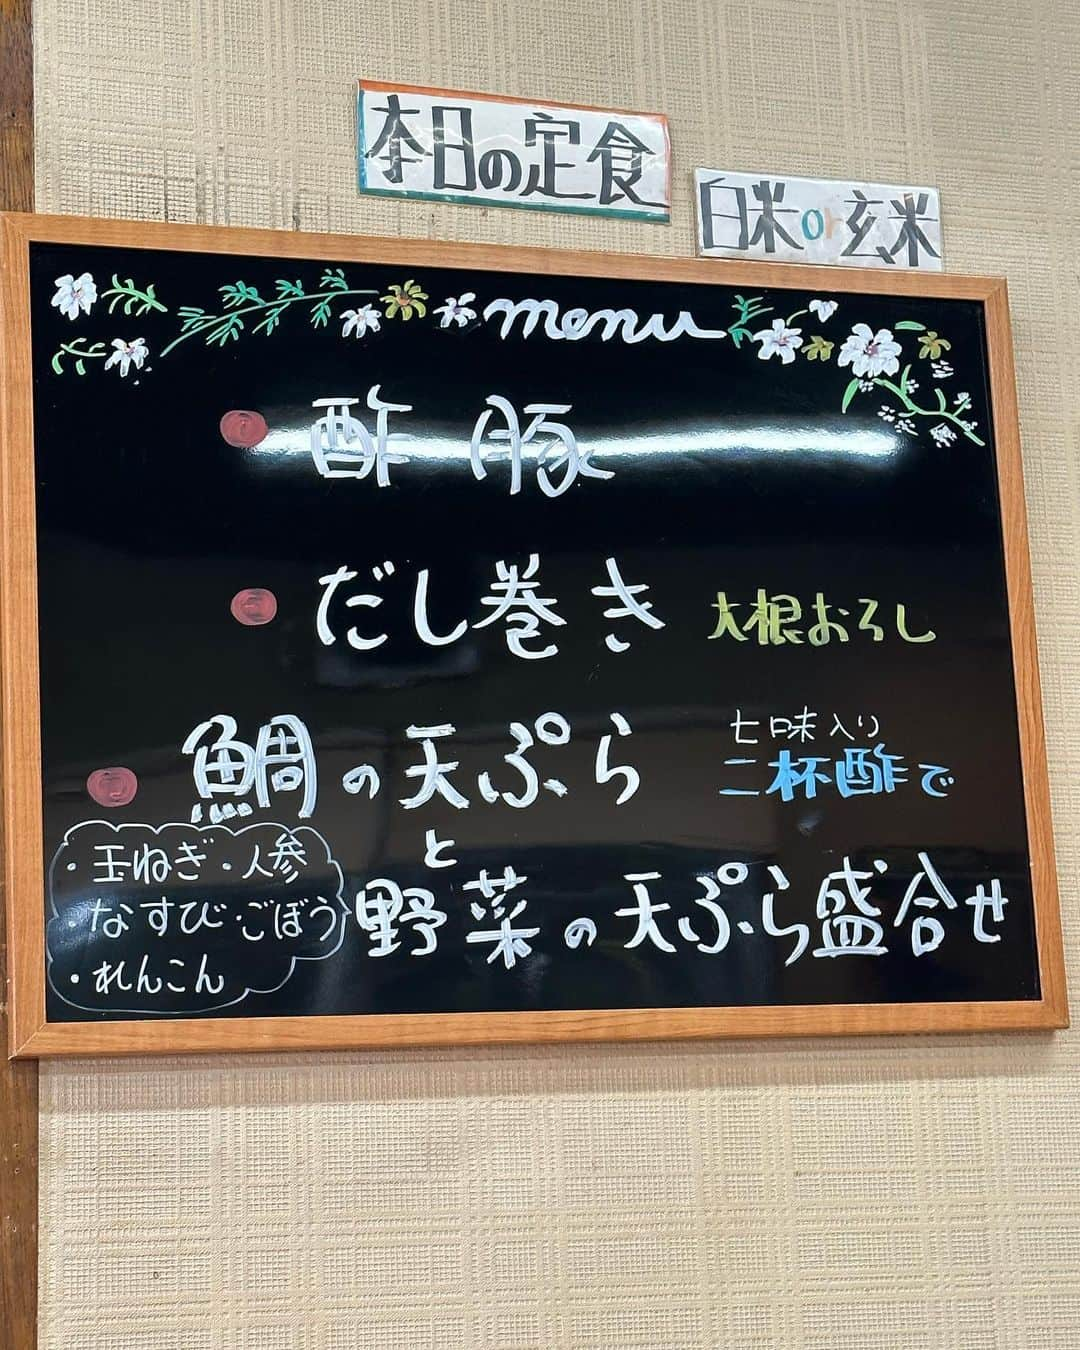 本日の定食
白米or玄米
menu
酢豚
だし巻き 大根おろし
鯛の天ぷら 七味入り
二杯酢で
と
野菜の天ぷら盛合せ
・玉ねぎ・人参
・なすび・ごぼう
・れんこん